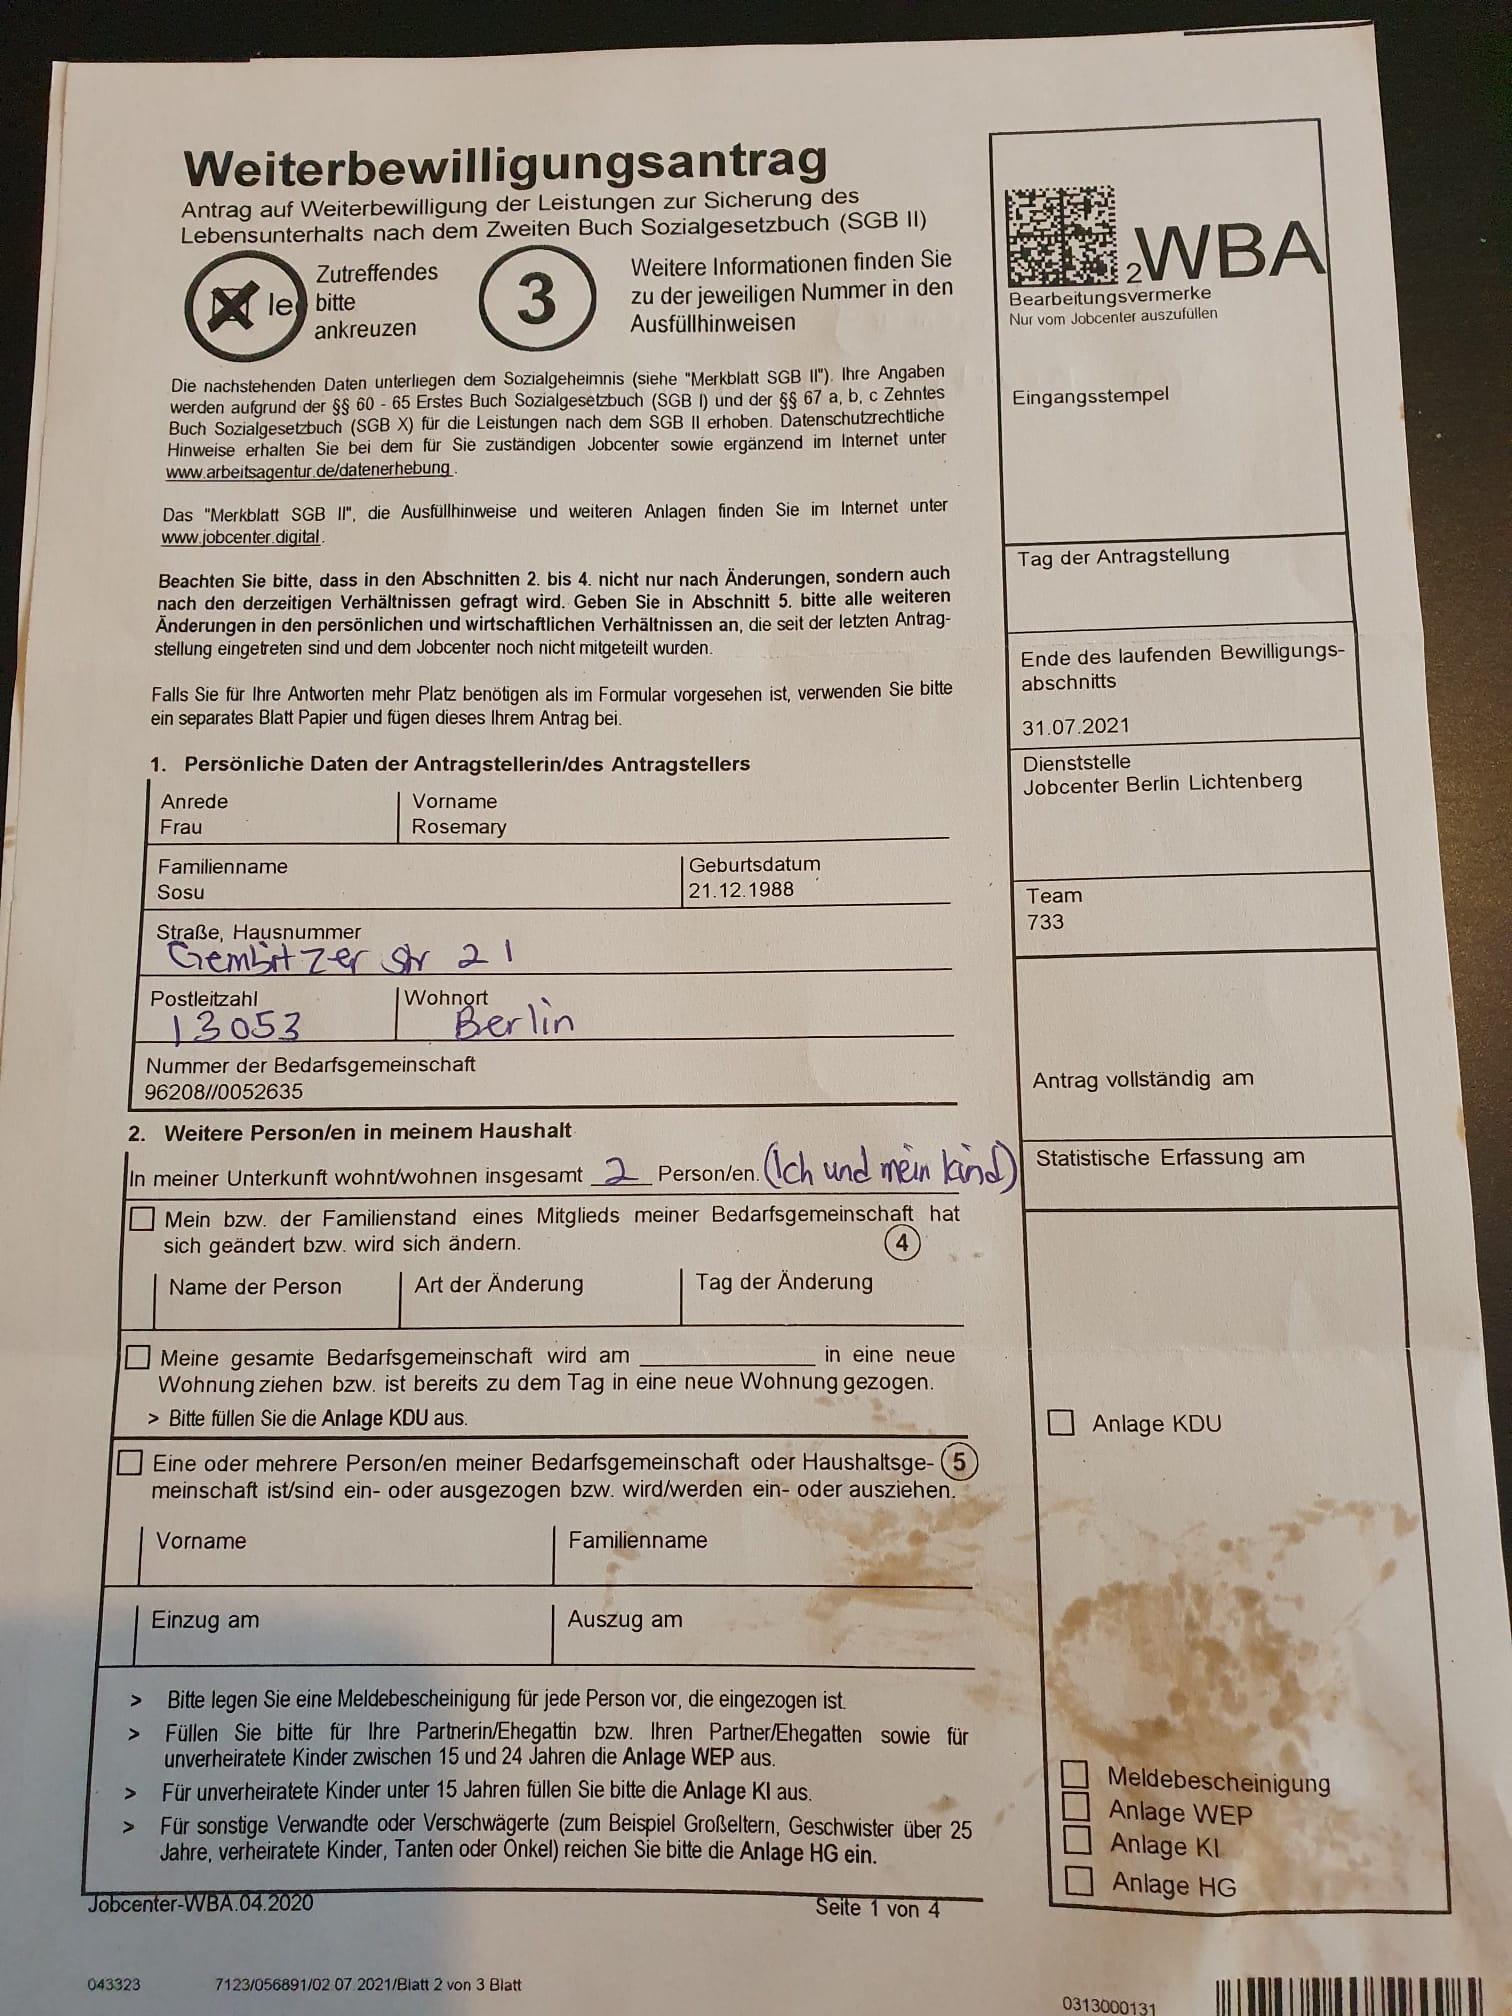 Weiterbewilligungsantrag
Antrag auf Weiterbewilligung der Leistungen zur Sicherung des
Lebensunterhalts nach dem Zweiten Buch Sozialgesetzbuch (SGB II)
le
Zutreffendes
bitte
ankreuzen
3
Weitere Informationen finden Sie
zu der jeweiligen Nummer in den
Ausfüllhinweisen
Die nachstehenden Daten unterliegen dem Sozialgeheimnis (siehe "Merkblatt SGB II"). Ihre Angaben
werden aufgrund der §§ 60 - 65 Erstes Buch Sozialgesetzbuch (SGB I) und der §§ 67 a, b, c Zehntes
Buch Sozialgesetzbuch (SGB X) für die Leistungen nach dem SGB II erhoben. Datenschutzrechtliche
Hinweise erhalten Sie bei dem für Sie zuständigen Jobcenter sowie ergänzend im Internet unter
www.arbeitsagentur.de/datenerhebung.
Das "Merkblatt SGB II", die Ausfüllhinweise und weiteren Anlagen finden Sie im Internet unter
www.jobcenter.digital.
Beachten Sie bitte, dass in den Abschnitten 2. bis 4. nicht nur nach Änderungen, sondern auch
nach den derzeitigen Verhältnissen gefragt wird. Geben Sie in Abschnitt 5. bitte alle weiteren
Änderungen in den persönlichen und wirtschaftlichen Verhältnissen an, die seit der letzten Antrag-
stellung eingetreten sind und dem Jobcenter noch nicht mitgeteilt wurden.
Falls Sie für Ihre Antworten mehr Platz benötigen als im Formular vorgesehen ist, verwenden Sie bitte
ein separates Blatt Papier und fügen dieses Ihrem Antrag bei.
1. Persönliche Daten der Antragstellerin/des Antragstellers
Anrede
Frau
Vorname
Rosemary
Familienname
Sosu
Geburtsdatum
21.12.1988
Straße, Hausnummer
Gembitzer str 21
Postleitzahl
13053
Wohnort
Berlin
Nummer der Bedarfsgemeinschaft
96208//0052635
2. Weitere Person/en in meinem Haushalt
In meiner Unterkunft wohnt/wohnen insgesamt 2 Person/en. (Ich und mein kind)
Mein bzw. der Familienstand eines Mitglieds meiner Bedarfsgemeinschaft hat
sich geändert bzw. wird sich ändern. 4
Name der Person
Art der Änderung
Tag der Änderung
Meine gesamte Bedarfsgemeinschaft wird am ____________ in eine neue
Wohnung ziehen bzw. ist bereits zu dem Tag in eine neue Wohnung gezogen.
> Bitte füllen Sie die Anlage KDU aus.
Eine oder mehrere Person/en meiner Bedarfsgemeinschaft oder Haushaltsge- 5
meinschaft ist/sind ein- oder ausgezogen bzw. wird/werden ein- oder ausziehen.
Vorname
Familienname
Einzug am
Auszug am
> Bitte legen Sie eine Meldebescheinigung für jede Person vor, die eingezogen ist.
> Füllen Sie bitte für Ihre Partnerin/Ehegattin bzw. Ihren Partner/Ehegatten sowie für
unverheiratete Kinder zwischen 15 und 24 Jahren die Anlage WEP aus.
> Für unverheiratete Kinder unter 15 Jahren füllen Sie bitte die Anlage KI aus.
> Für sonstige Verwandte oder Verschwägerte (zum Beispiel Großeltern, Geschwister über 25
Jahre, verheiratete Kinder, Tanten oder Onkel) reichen Sie bitte die Anlage HG ein.
Jobcenter-WBA.04.2020
Seite 1 von 4
043323
7123/056891/02.07.2021/Blatt 2 von 3 Blatt
2WBA
Bearbeitungsvermerke
Nur vom Jobcenter auszufüllen
Eingangsstempel
Tag der Antragstellung
Ende des laufenden Bewilligungs-
abschnitts
31.07.2021
Dienststelle
Jobcenter Berlin Lichtenberg
Team
733
Antrag vollständig am
Statistische Erfassung am
Anlage KDU
Meldebescheinigung
Anlage WEP
Anlage KI
Anlage HG
0313000131